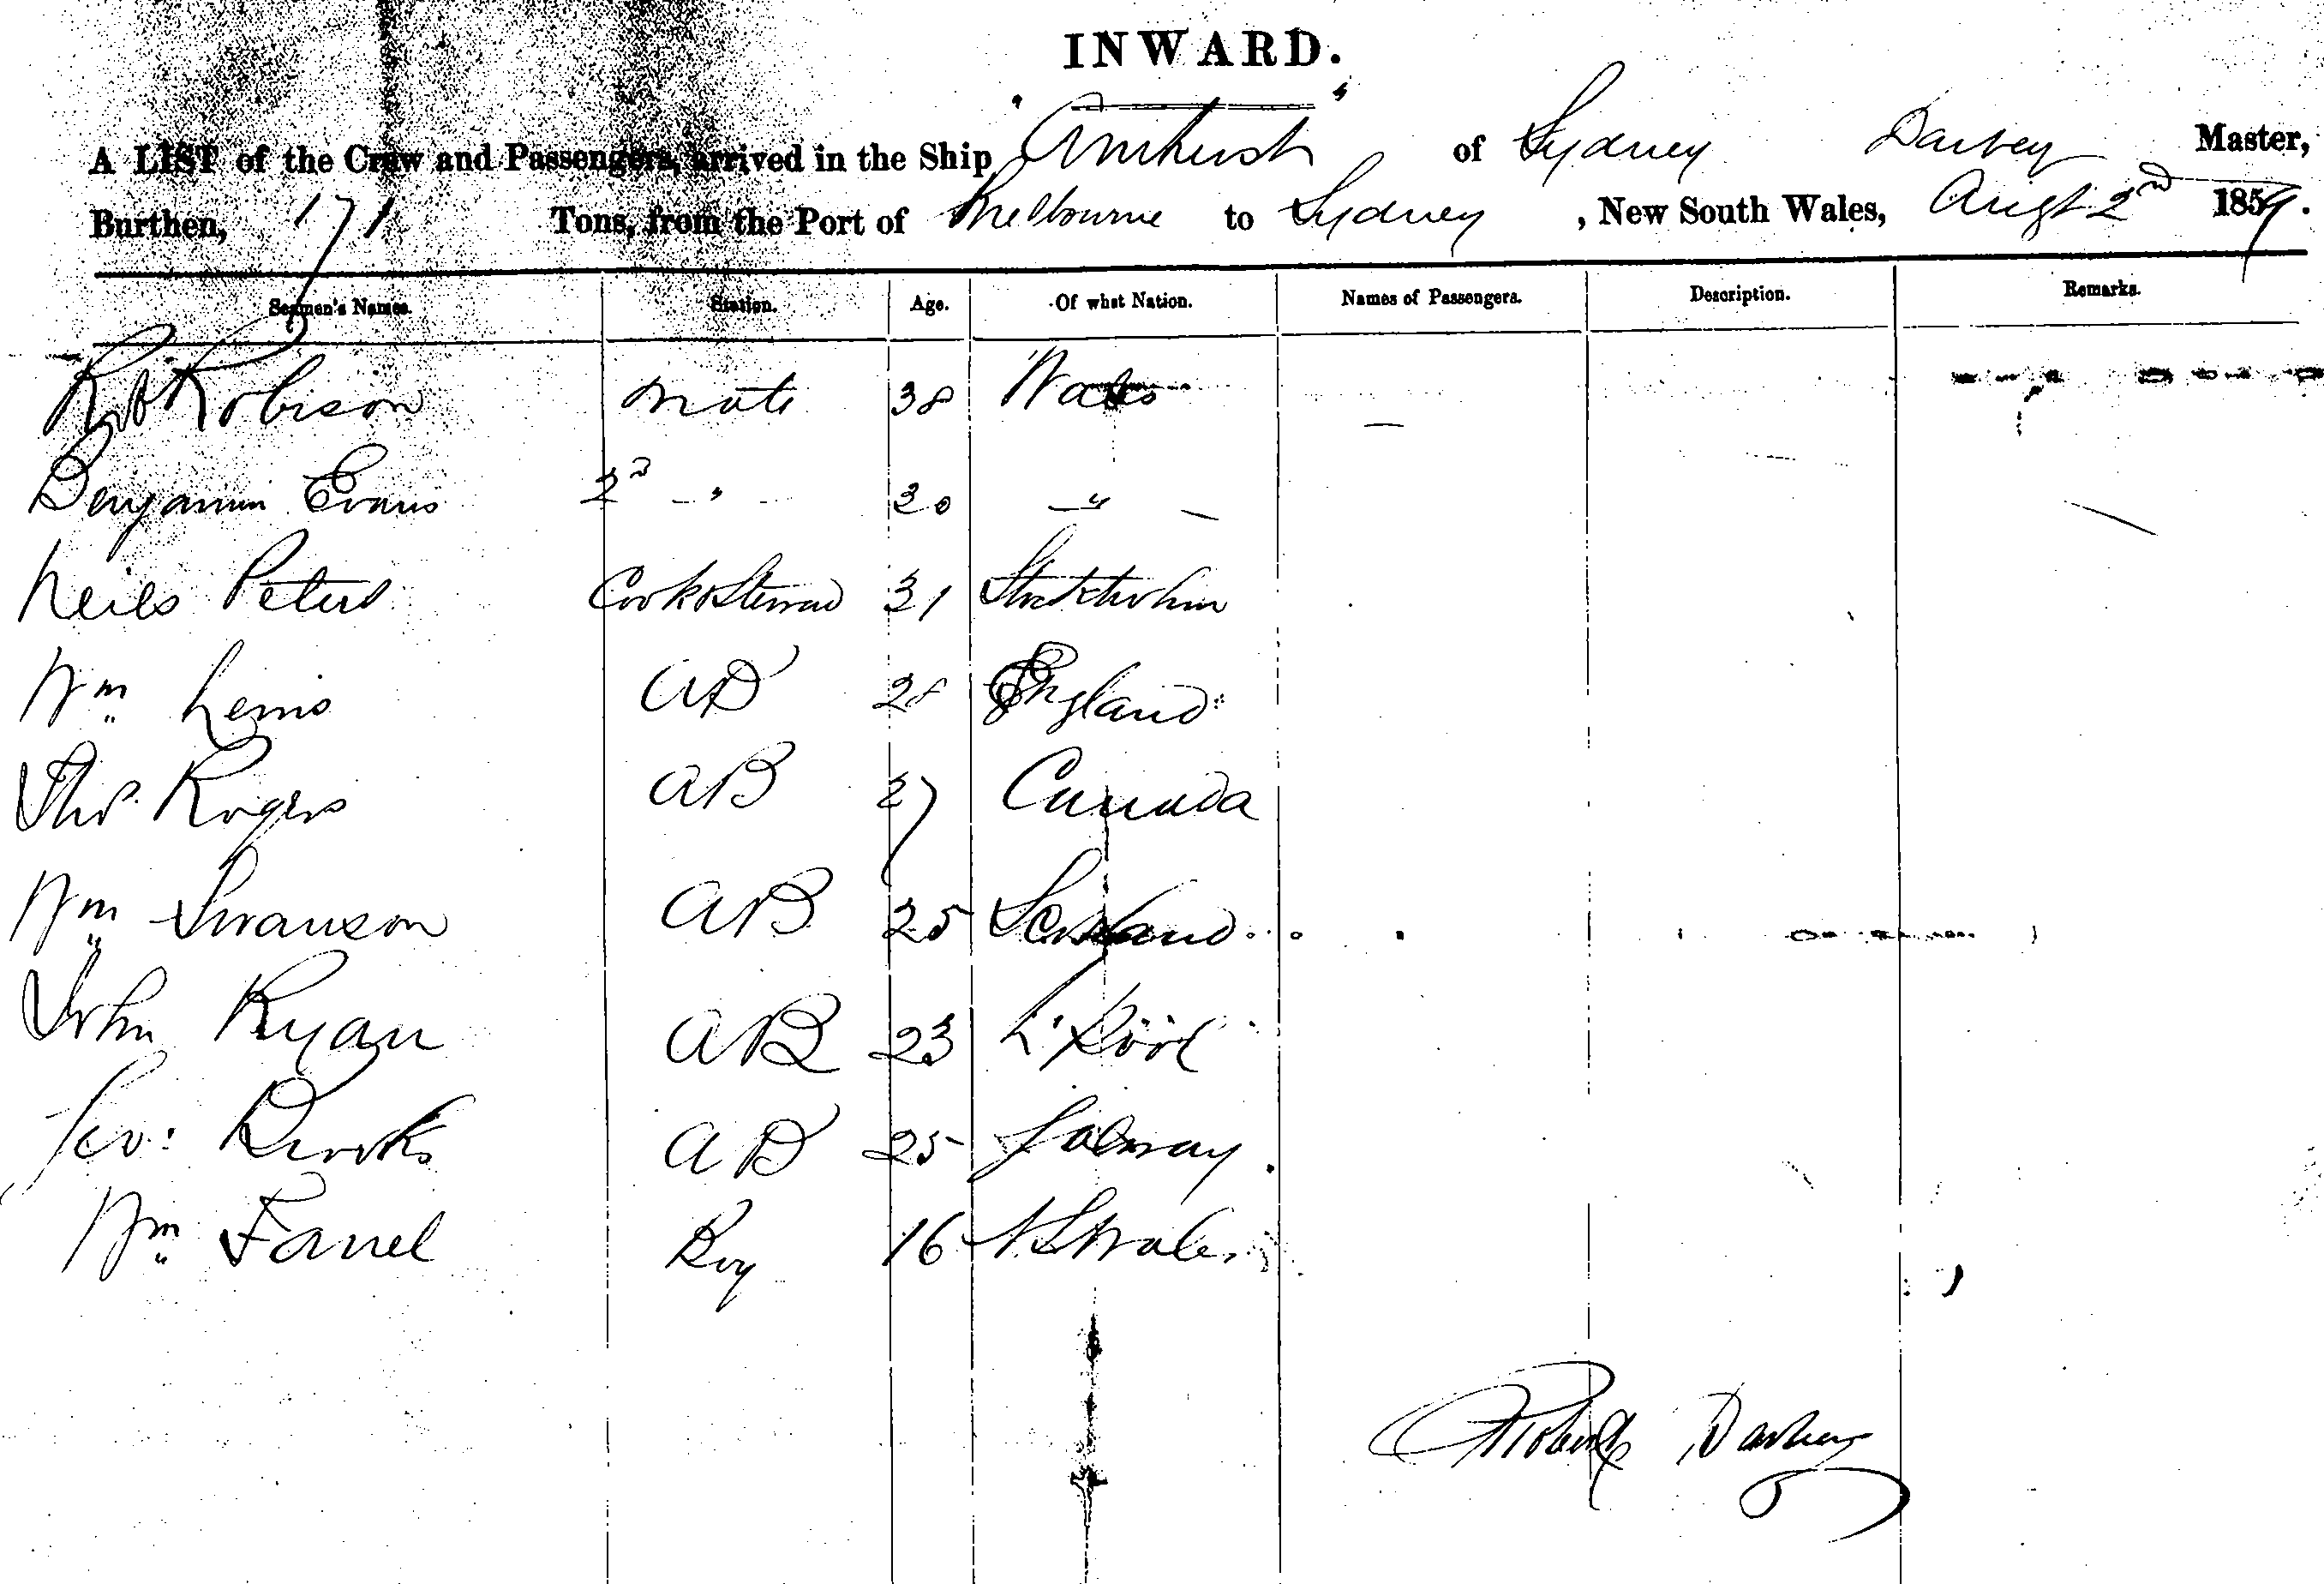 INWARD.
A LIST of the Crew and Passengers, arrived in the Ship "Amherst" of Sydney Darbey Master,
Burthen, 171 Tons, from the Port of Melbourne to Sydney, New South Wales, Augt 2nd 1859.
Seamen's Names. Station. Age. Of what Nation. Names of Passengers. Description. Remarks.
Robt Robison Mate 38 Wales
Benjamin Evans 2d " 30 "
Neils Peters Cook & Steward 31 Stockholm
Wm Lewis AB 28 England
Thos. Rogers AB 27 Canada
Wm Swanson AB 25 Scotland
John Ryan AB 23 L'pool
Geo: Brooks AB 25 Galway.
Wm Farrel Boy 16 N S Wales
Robert Darbey